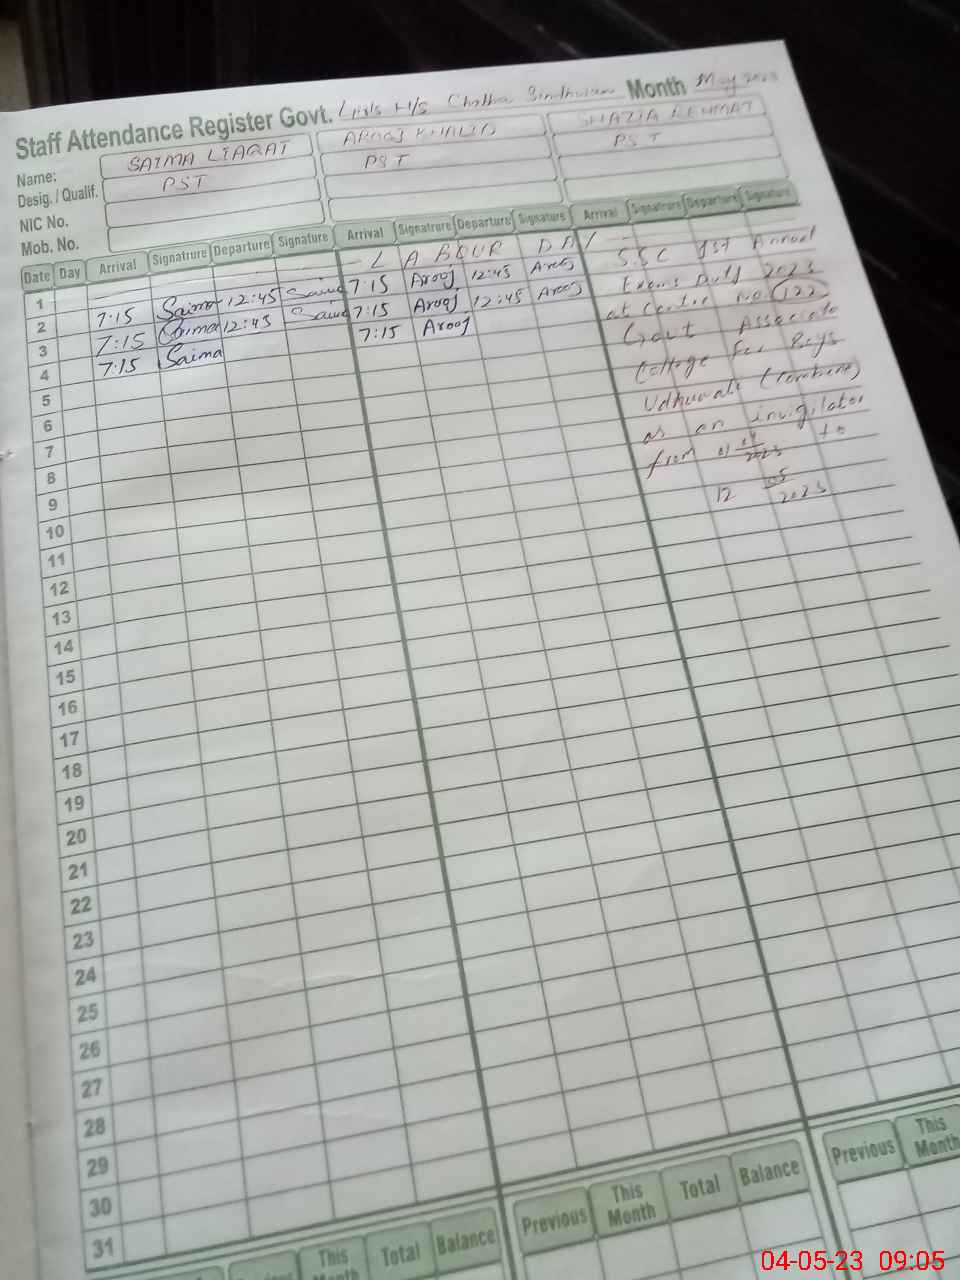 Staff Attendance Register Govt. Girls H/S Chatha Sindhwan Month May 2023
Name: SAIMA LIAQAT AROOJ KHALID SHAZIA REHMAT
Desig. / Qualif. PST PST PST
NIC No.
Mob. No.
Date Day Arrival Signatrure Departure Signature Arrival Signatrure Departure Signature Arrival Signatrure Departure Signature
1 LABOUR DAY
2 7:15 Saima 12:45 Saima 7:15 Arooj 12:45 Arooj
3 7:15 Saima 12:45 Saima 7:15 Arooj 12:45 Arooj
4 7:15 Saima 7:15 Arooj
SSC 1st Annual
Exams Duty 2023
at Centre no. 122
Govt Associate
College for Boys
(combine)
as an invigilator
from 04 2023 to
12 05 2023
5
6
7
8
9
10
11
12
13
14
15
16
17
18
19
20
21
22
23
24
25
26
27
28
29
30
31
This Month Total Balance Previous This Month Total Balance Previous This Month
04-05-23 09:05